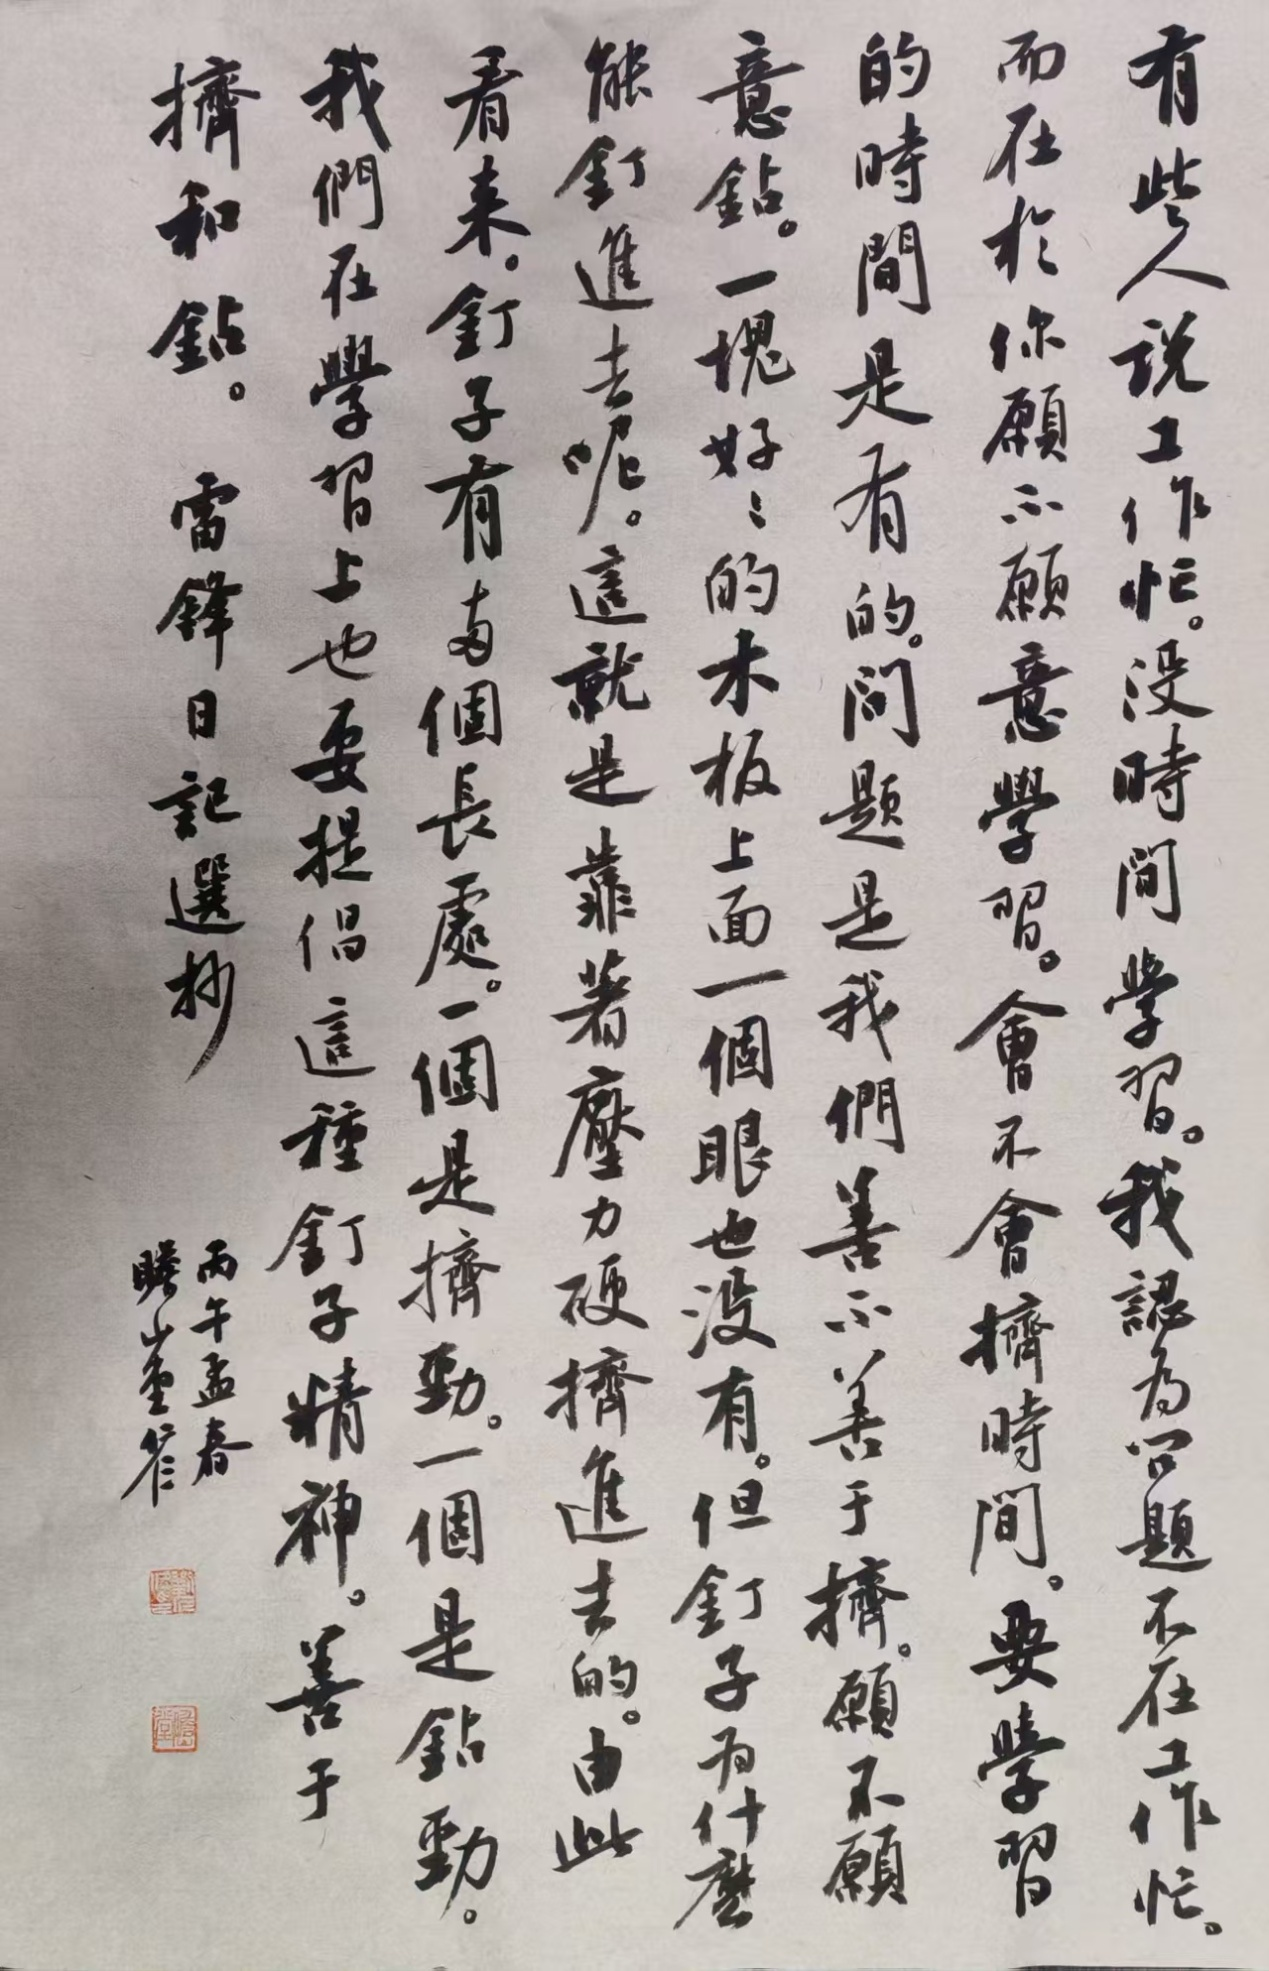 有些人説工作忙。没時間學習。我認為問題不在工作忙。
而在於你願不願意學習。會不會擠時間。要學習
的時間是有的。問題是我們善不善于擠。願不願
意鉆。一塊好〻的木板上面一個眼也没有。但釘子为什麼
能釘進去呢。這就是靠著壓力硬擠進去的。由此
看来。釘子有两個長處。一個是擠勁。一個是鉆勁。
我們在學習上也要提倡這種釘子精神。善于
擠和鉆。 雷鋒日記選抄
丙午孟春
山